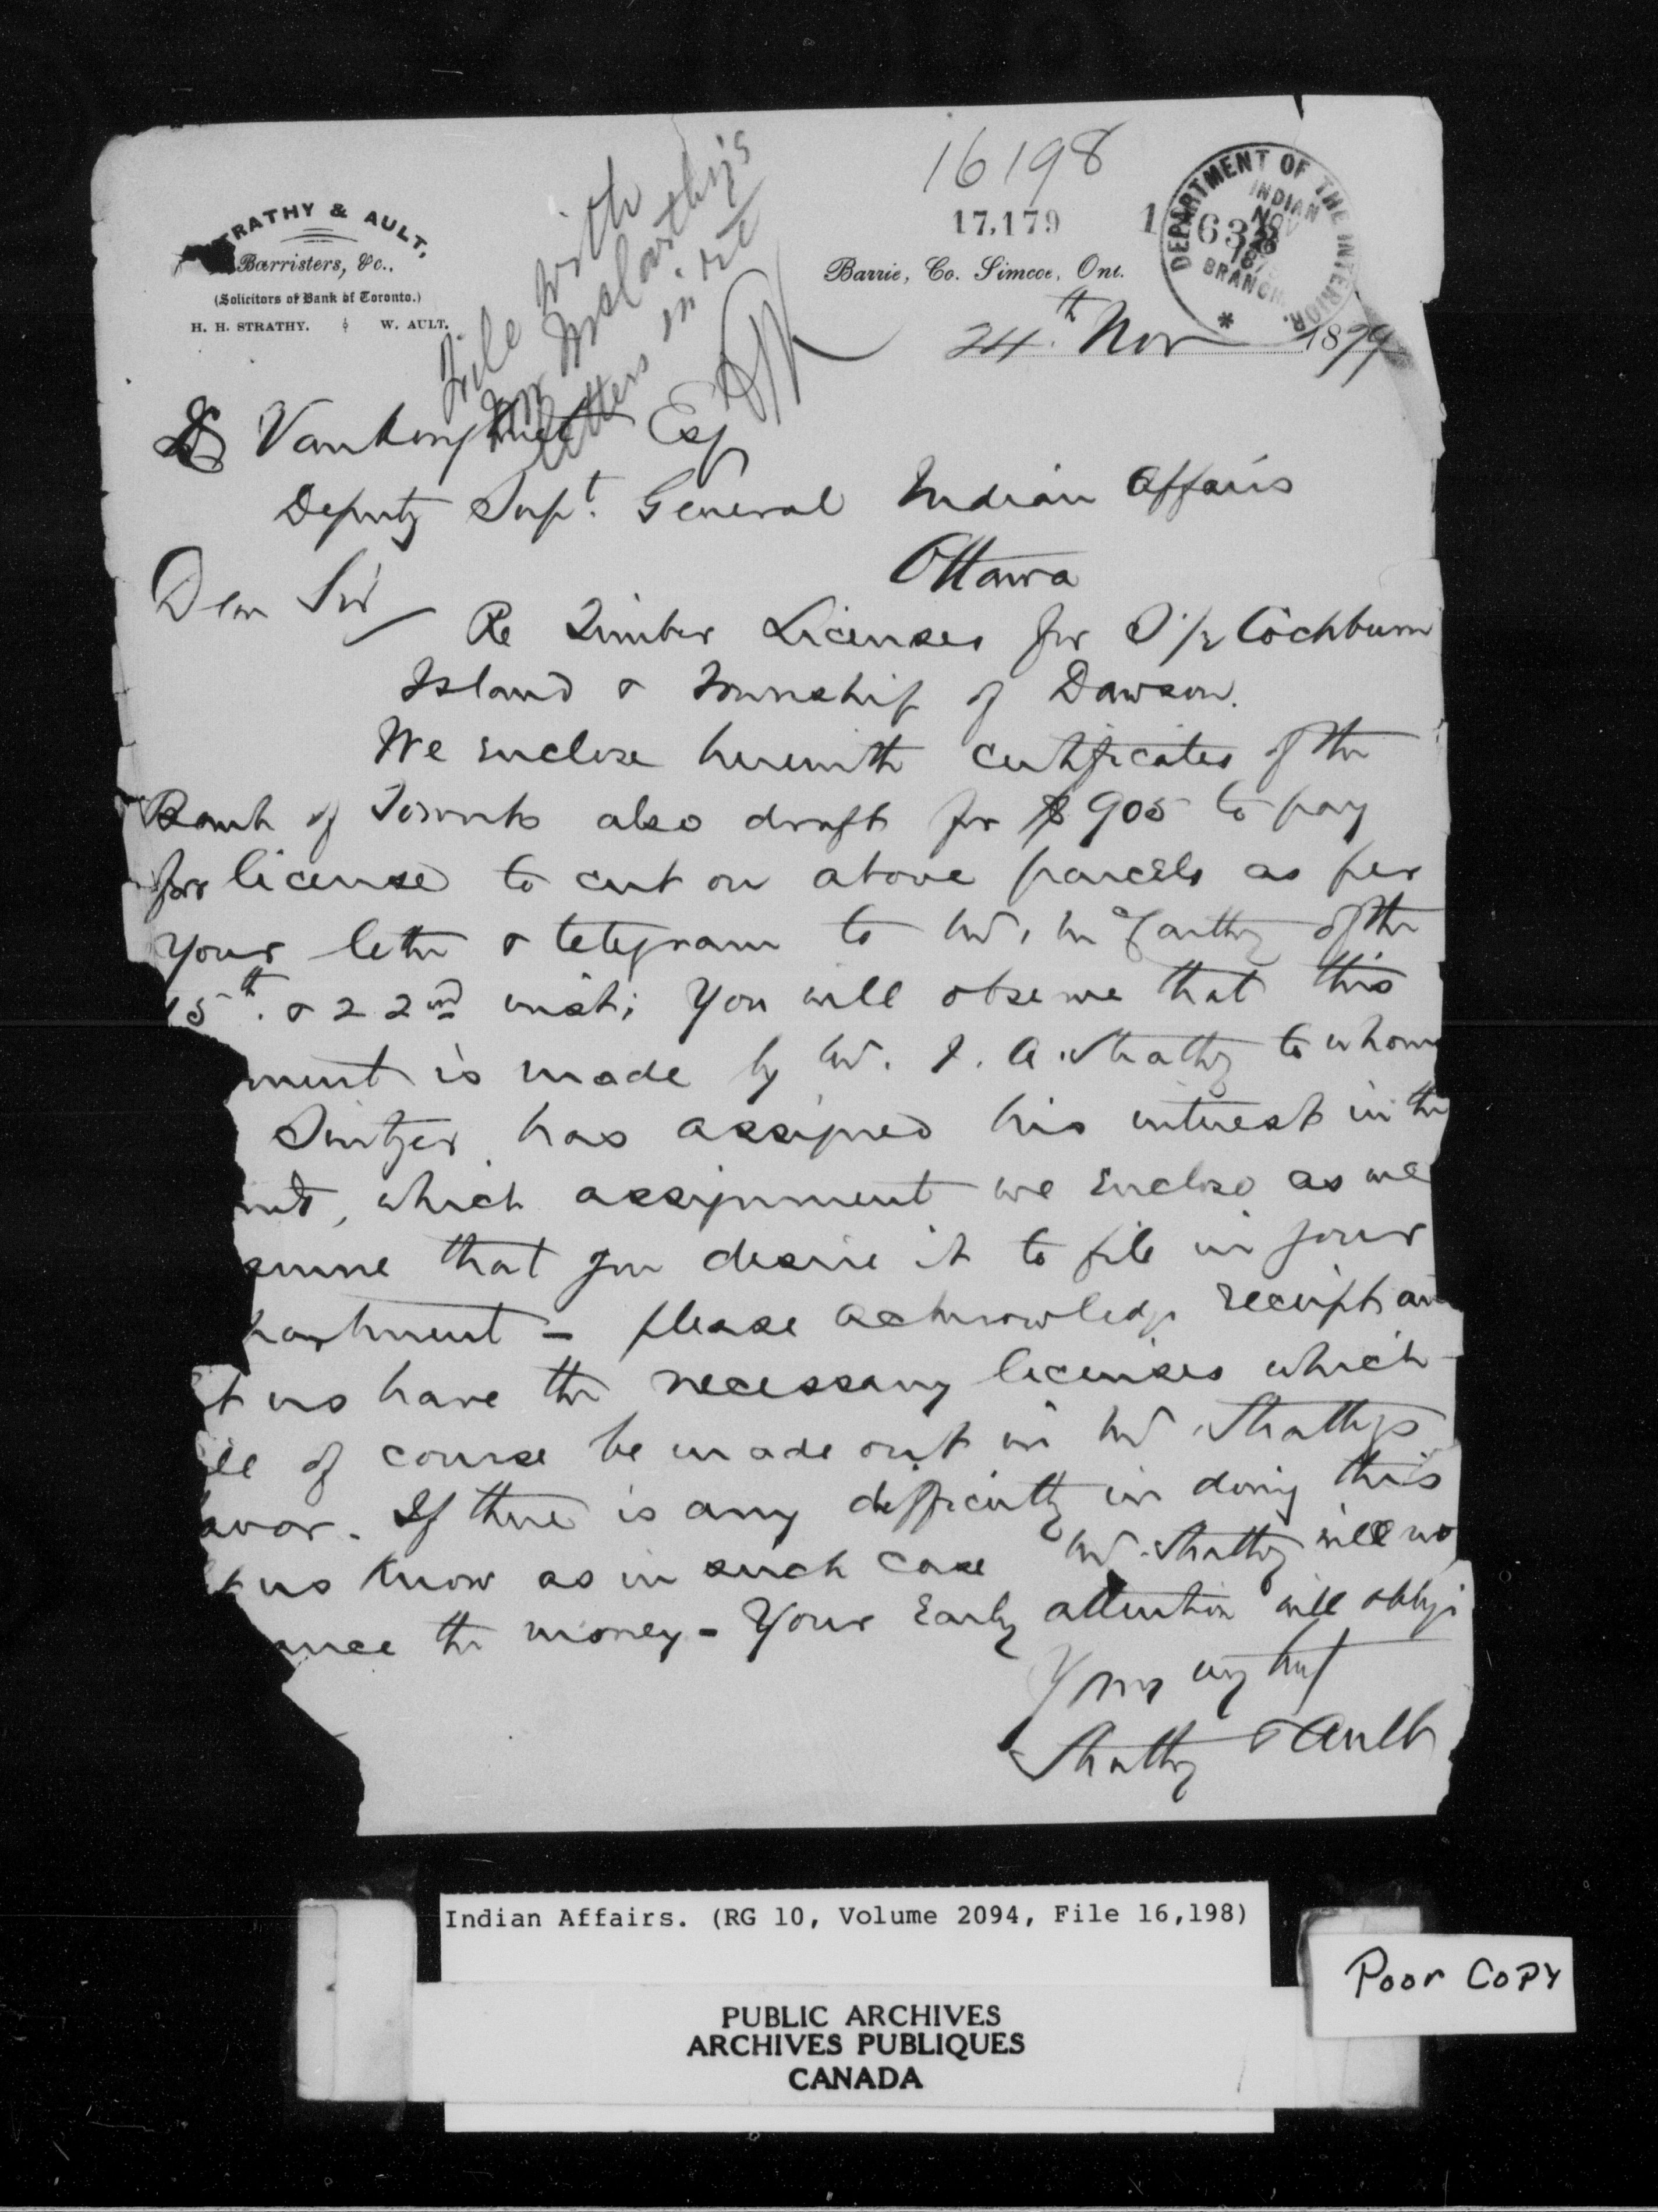 16198
17.179
1 63
DEPARTMENT OF THE INTERIOR.
INDIAN
NOV
BRANCH
STRATHY & AULT,
Barristers, &c.,
(Solicitors of Bank of Toronto.)
H. H. STRATHY. W. AULT.
File with
Mr McCarthy's
letters in re
Barrie, Co. Simcoe, Ont.
24th. Nov 1879
L Vankoughnet Esq
Deputy Supt. General Indian Affairs
Ottawa
Dear Sir
Re Timber Licenses for S 1/2 Cockburn
Island & Township of Dawson.
We enclose herewith certificates of the
Bank of Toronto also draft for $905 to pay
for license to cut on above parcels as per
your letter & telegram to Mr. McCarthy of the
15th. & 22nd inst; You will observe that this
ment is made by Mr. J. A. Strathy to whom
has assigned his interest in the
which assignment we enclose as we
sume that you desire it to file in your
partment - please acknowledge receipt an
t us have the necessary licenses which
ll of course be made out in Mr Strathys
avor. If there is any difficulty in doing this
t us know as in such case Mr. Strathy will no
ance the money - Your Early attention will oblige
Yours
Strathy & Ault
Indian Affairs. (RG 10, Volume 2094, File 16,198)
Poor Copy
PUBLIC ARCHIVES
ARCHIVES PUBLIQUES
CANADA